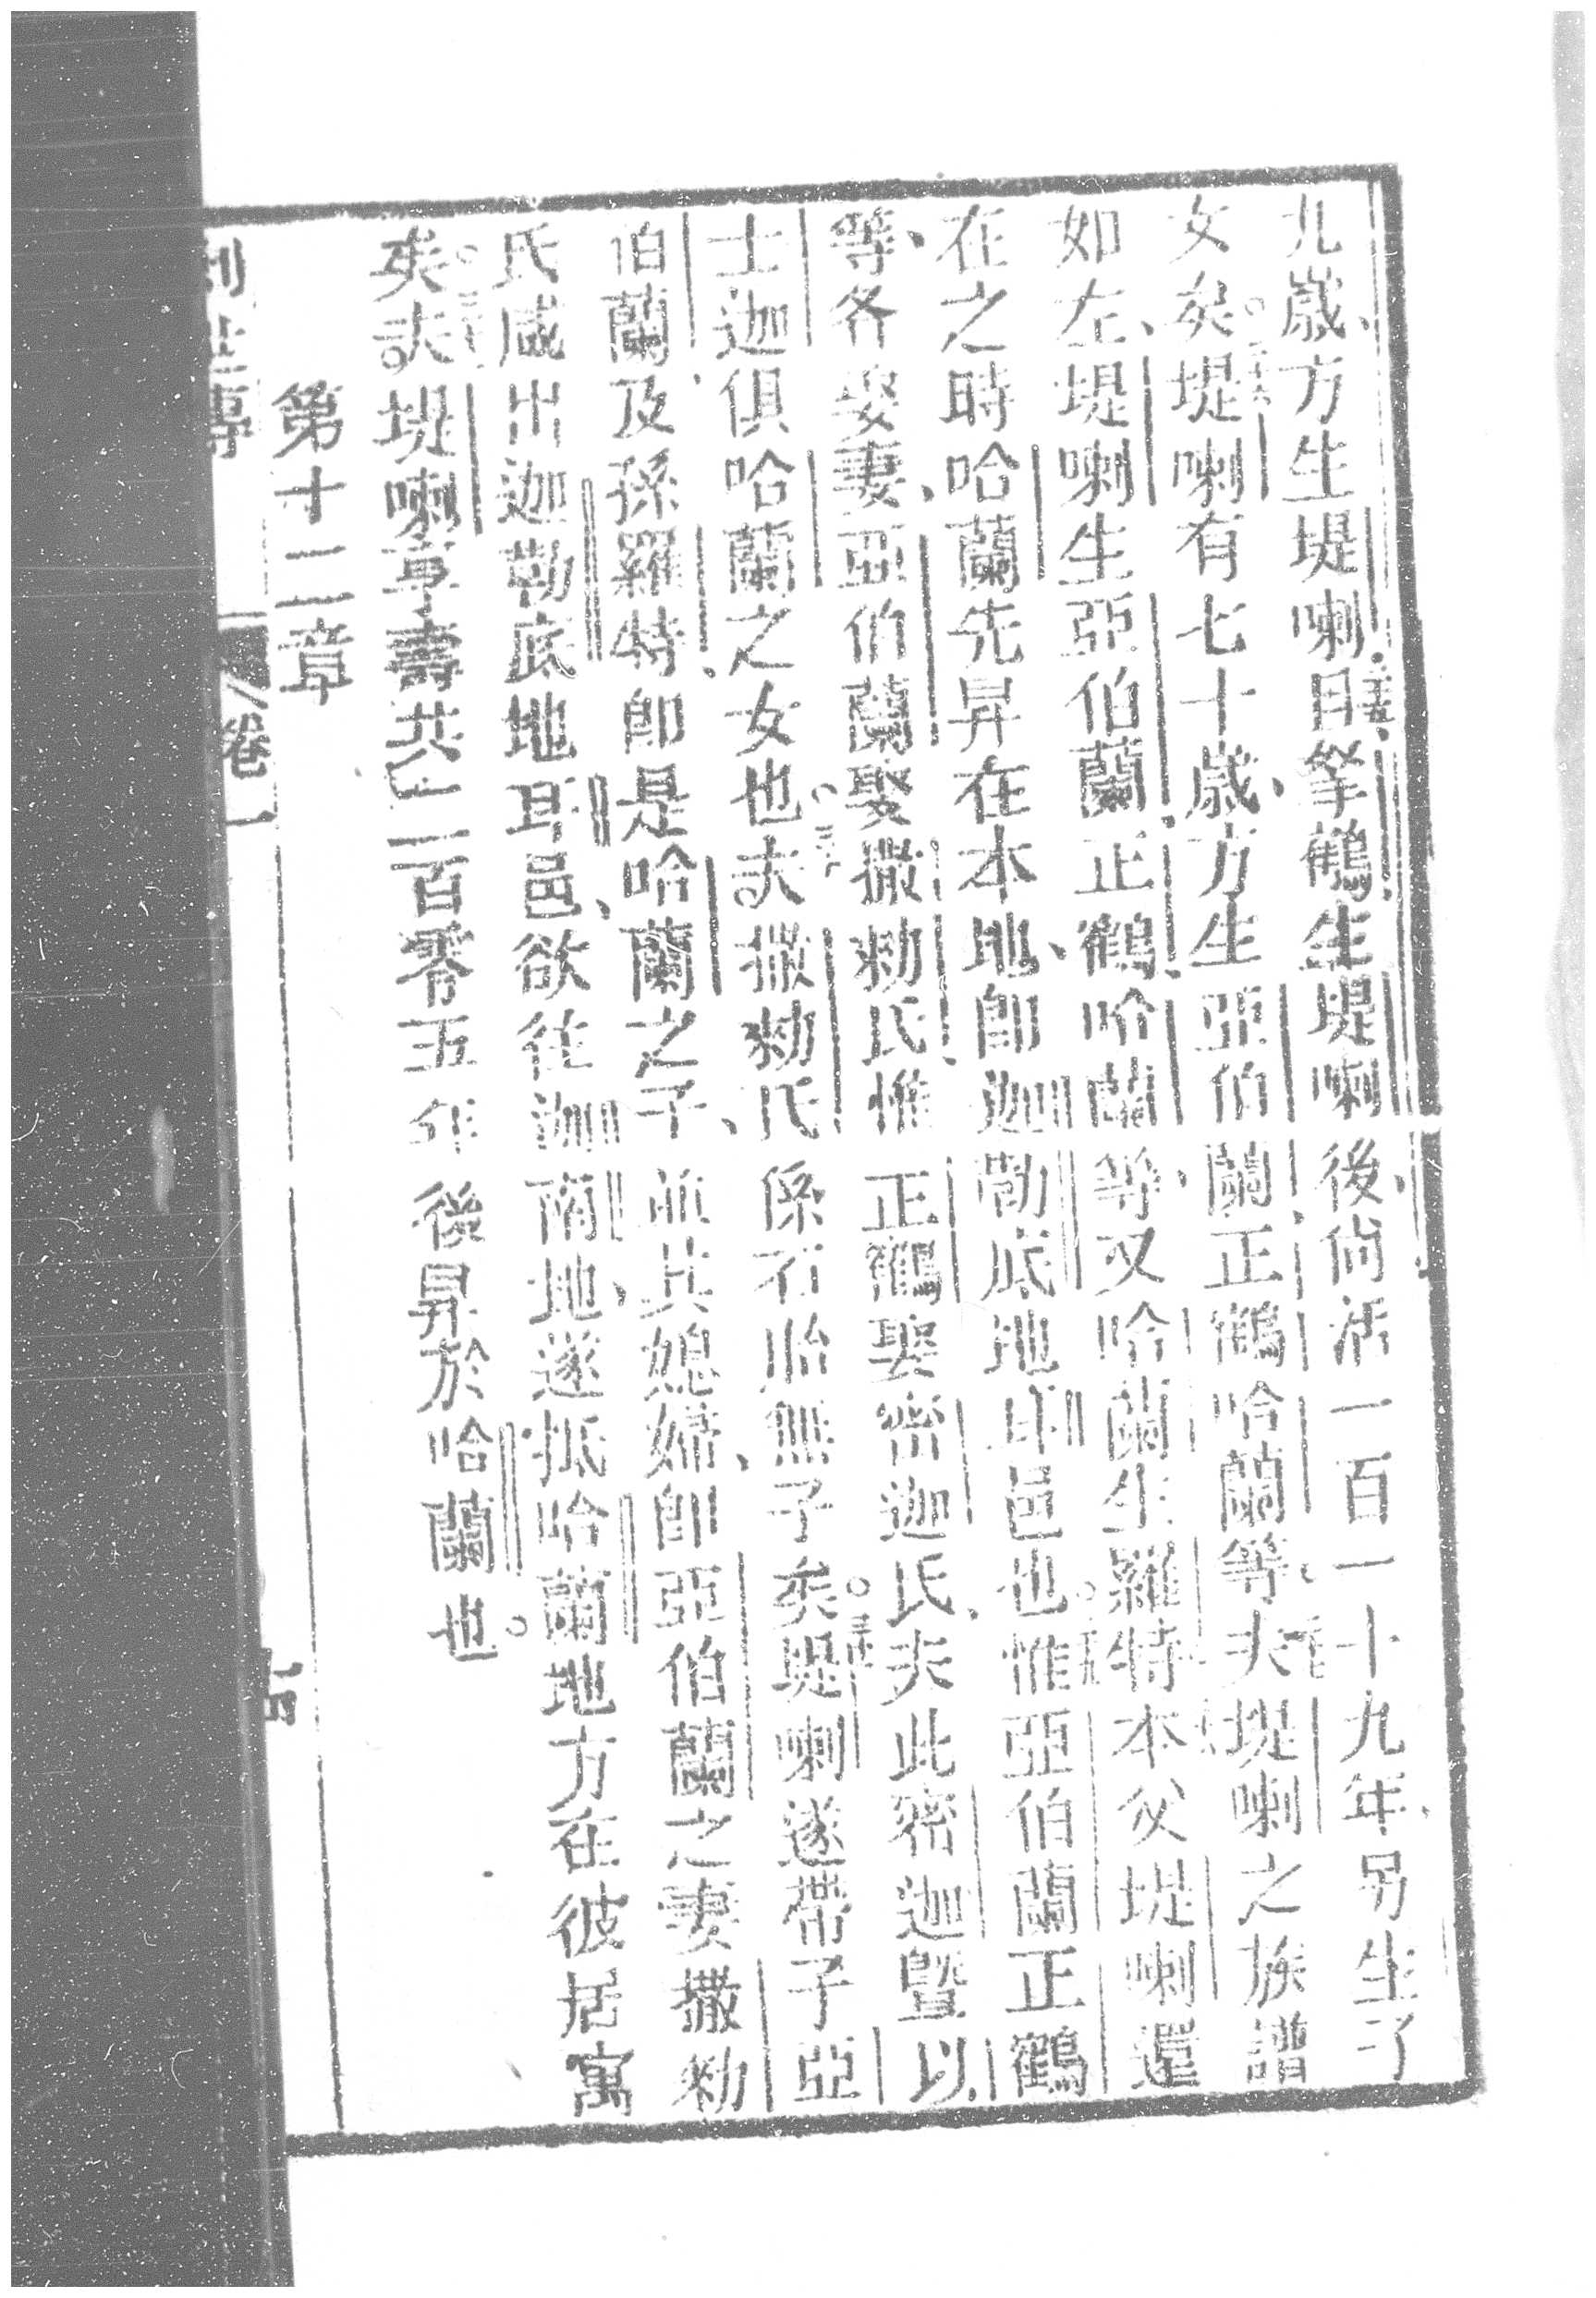 九歲、方生堤喇、且拏鶴生堤喇後、尚活一百一十九年、另生子
女矣。堤喇有七十歲、方生亞伯蘭、正鶴、哈蘭等、夫堤喇之族譜
如左、堤喇生亞伯蘭、正鶴、哈蘭等、又哈蘭生羅特、本父堤喇還
在之時、哈蘭先昇在本地、即迦勒底地耳邑也。惟亞伯蘭正鶴
等、各娶妻、亞伯蘭娶撒勑氏、惟正鶴娶密迦氏、夫此密迦暨以
士迦、俱哈蘭之女也。夫撒勑氏、係石胎無子矣。堤喇遂帶子亞
伯蘭、及孫羅特、即是哈蘭之子、並其媳婦、即亞伯蘭之妻撒勑
氏、咸出迦勒底地耳邑、欲往迦南地、遂抵哈蘭地方、在彼居寓
矣。夫堤喇享壽共二百零五年、後昇於哈蘭也。
第十二章
卷一